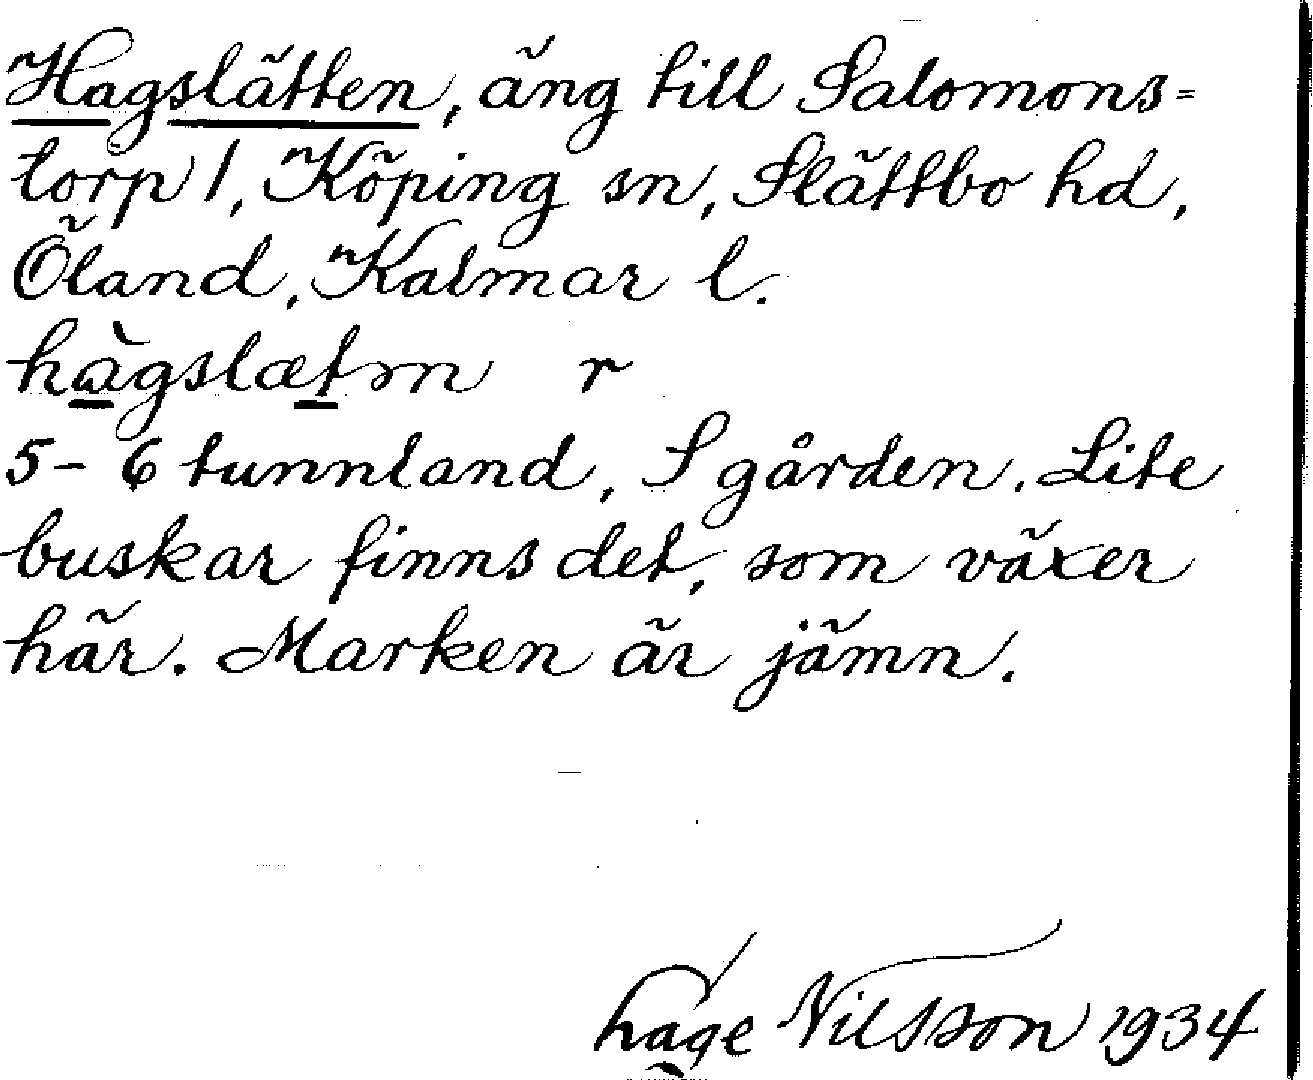 Hagslätten, äng till Salomons=
torp 1, Köping sn, Slättbo hd,
Öland, Kalmar l.
hàgslætən r
5-6 tunnland, S gården. Lite
buskar finns det, som växer
här. Marken är jämn.
Nilsson 1934